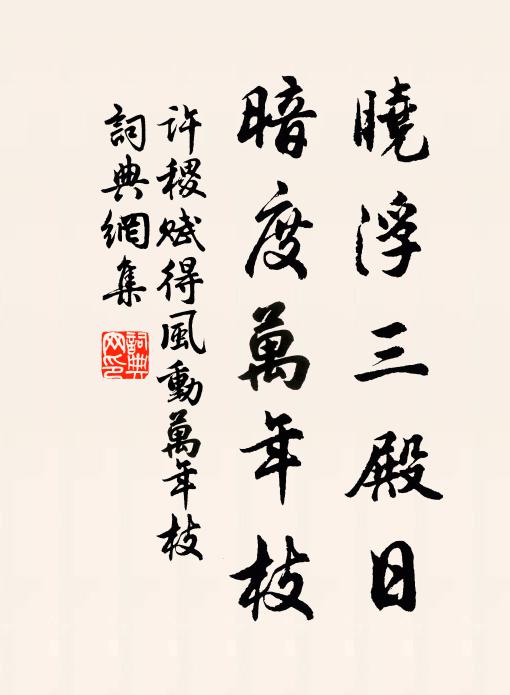 曉浮三殿日
暗度萬年枝
許稷賦得風動萬年枝
詞典網集
詞典網印